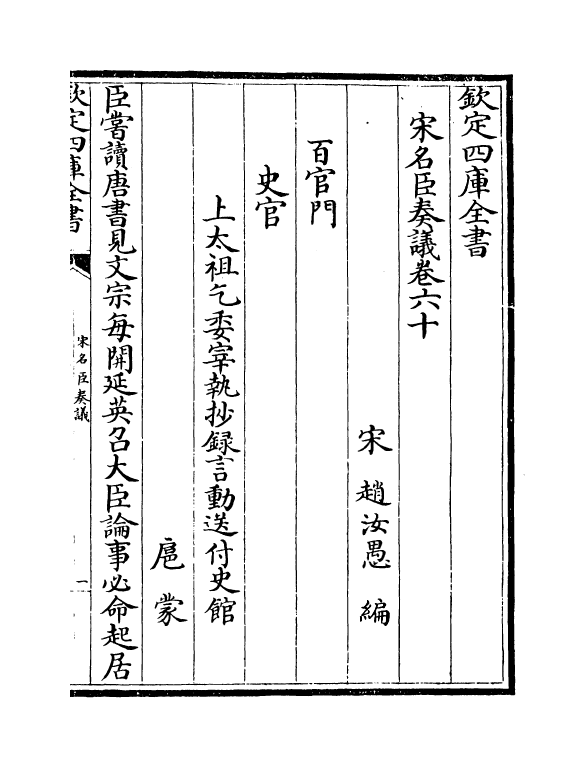 欽定四庫全書
宋名臣奏議卷六十
宋 趙汝愚 編
百官門
史官
上太祖乞委宰執抄録言動送付史館
扈蒙
臣嘗讀唐書見文宗每開延英召大臣論事必命起居
欽定四庫全書
宋名臣奏議
一